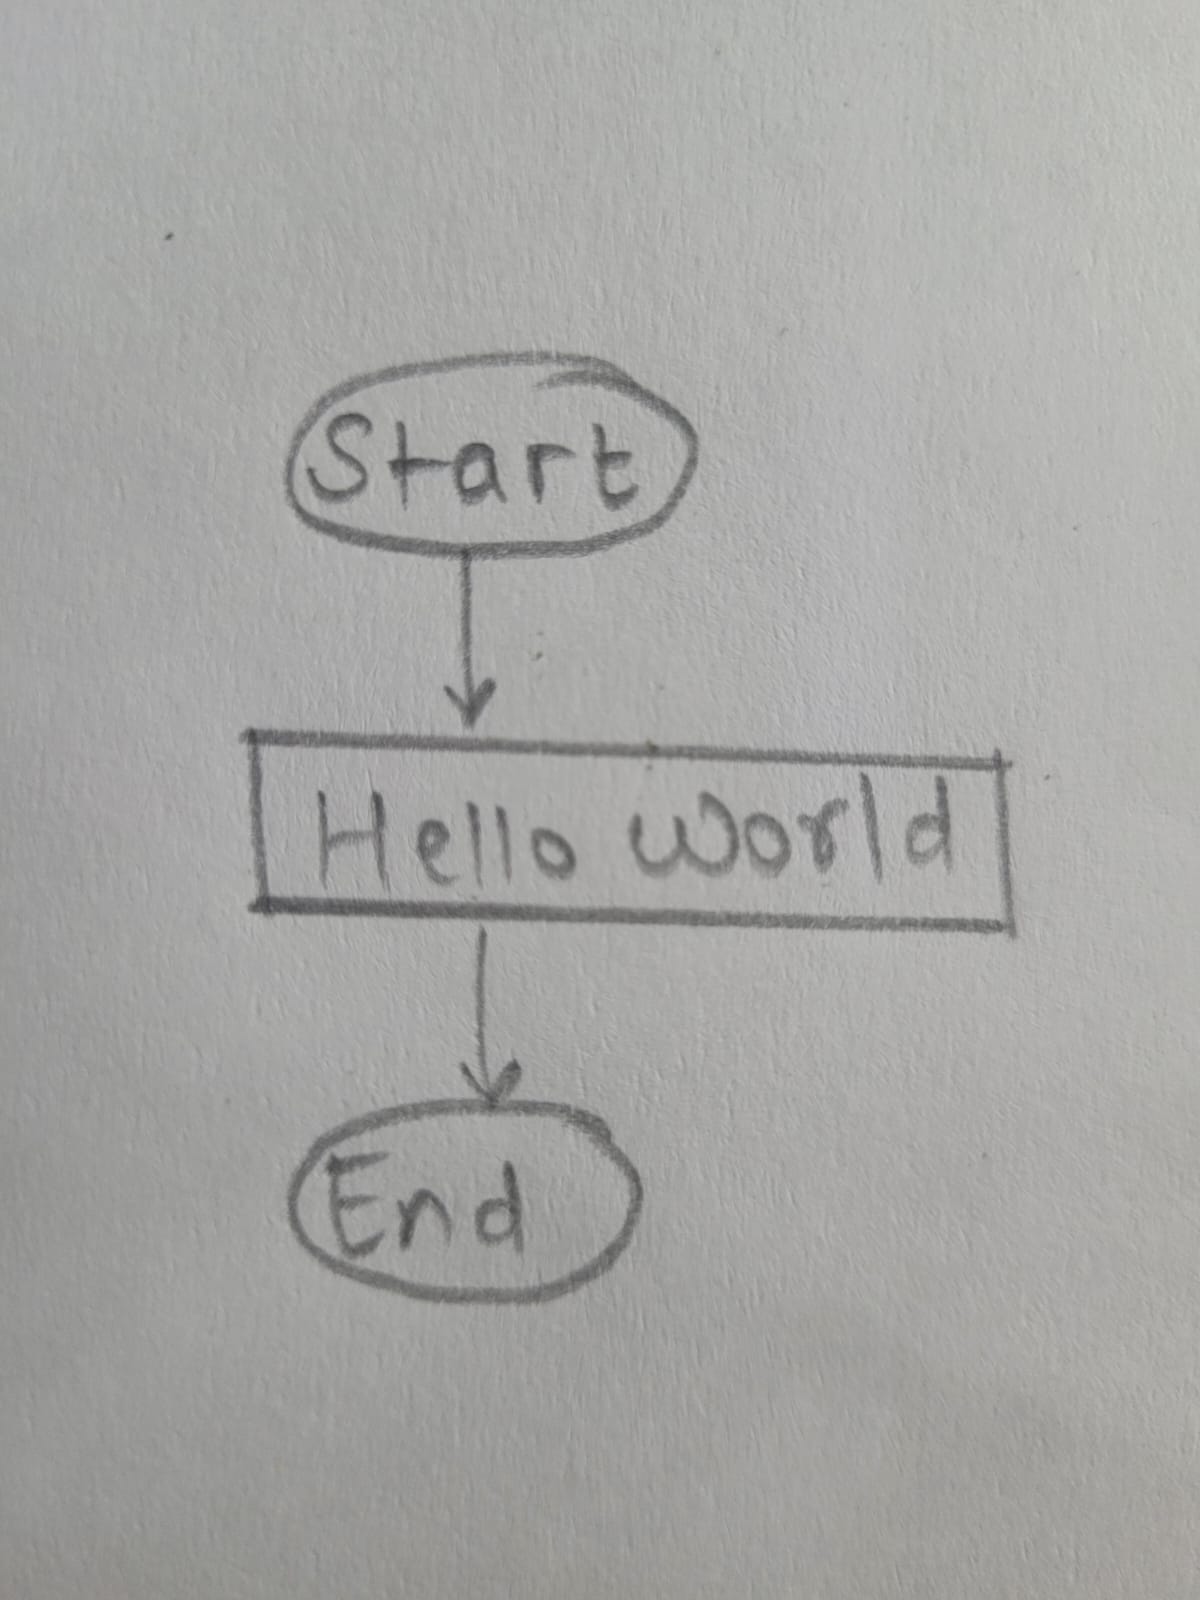 Start
Hello world
End